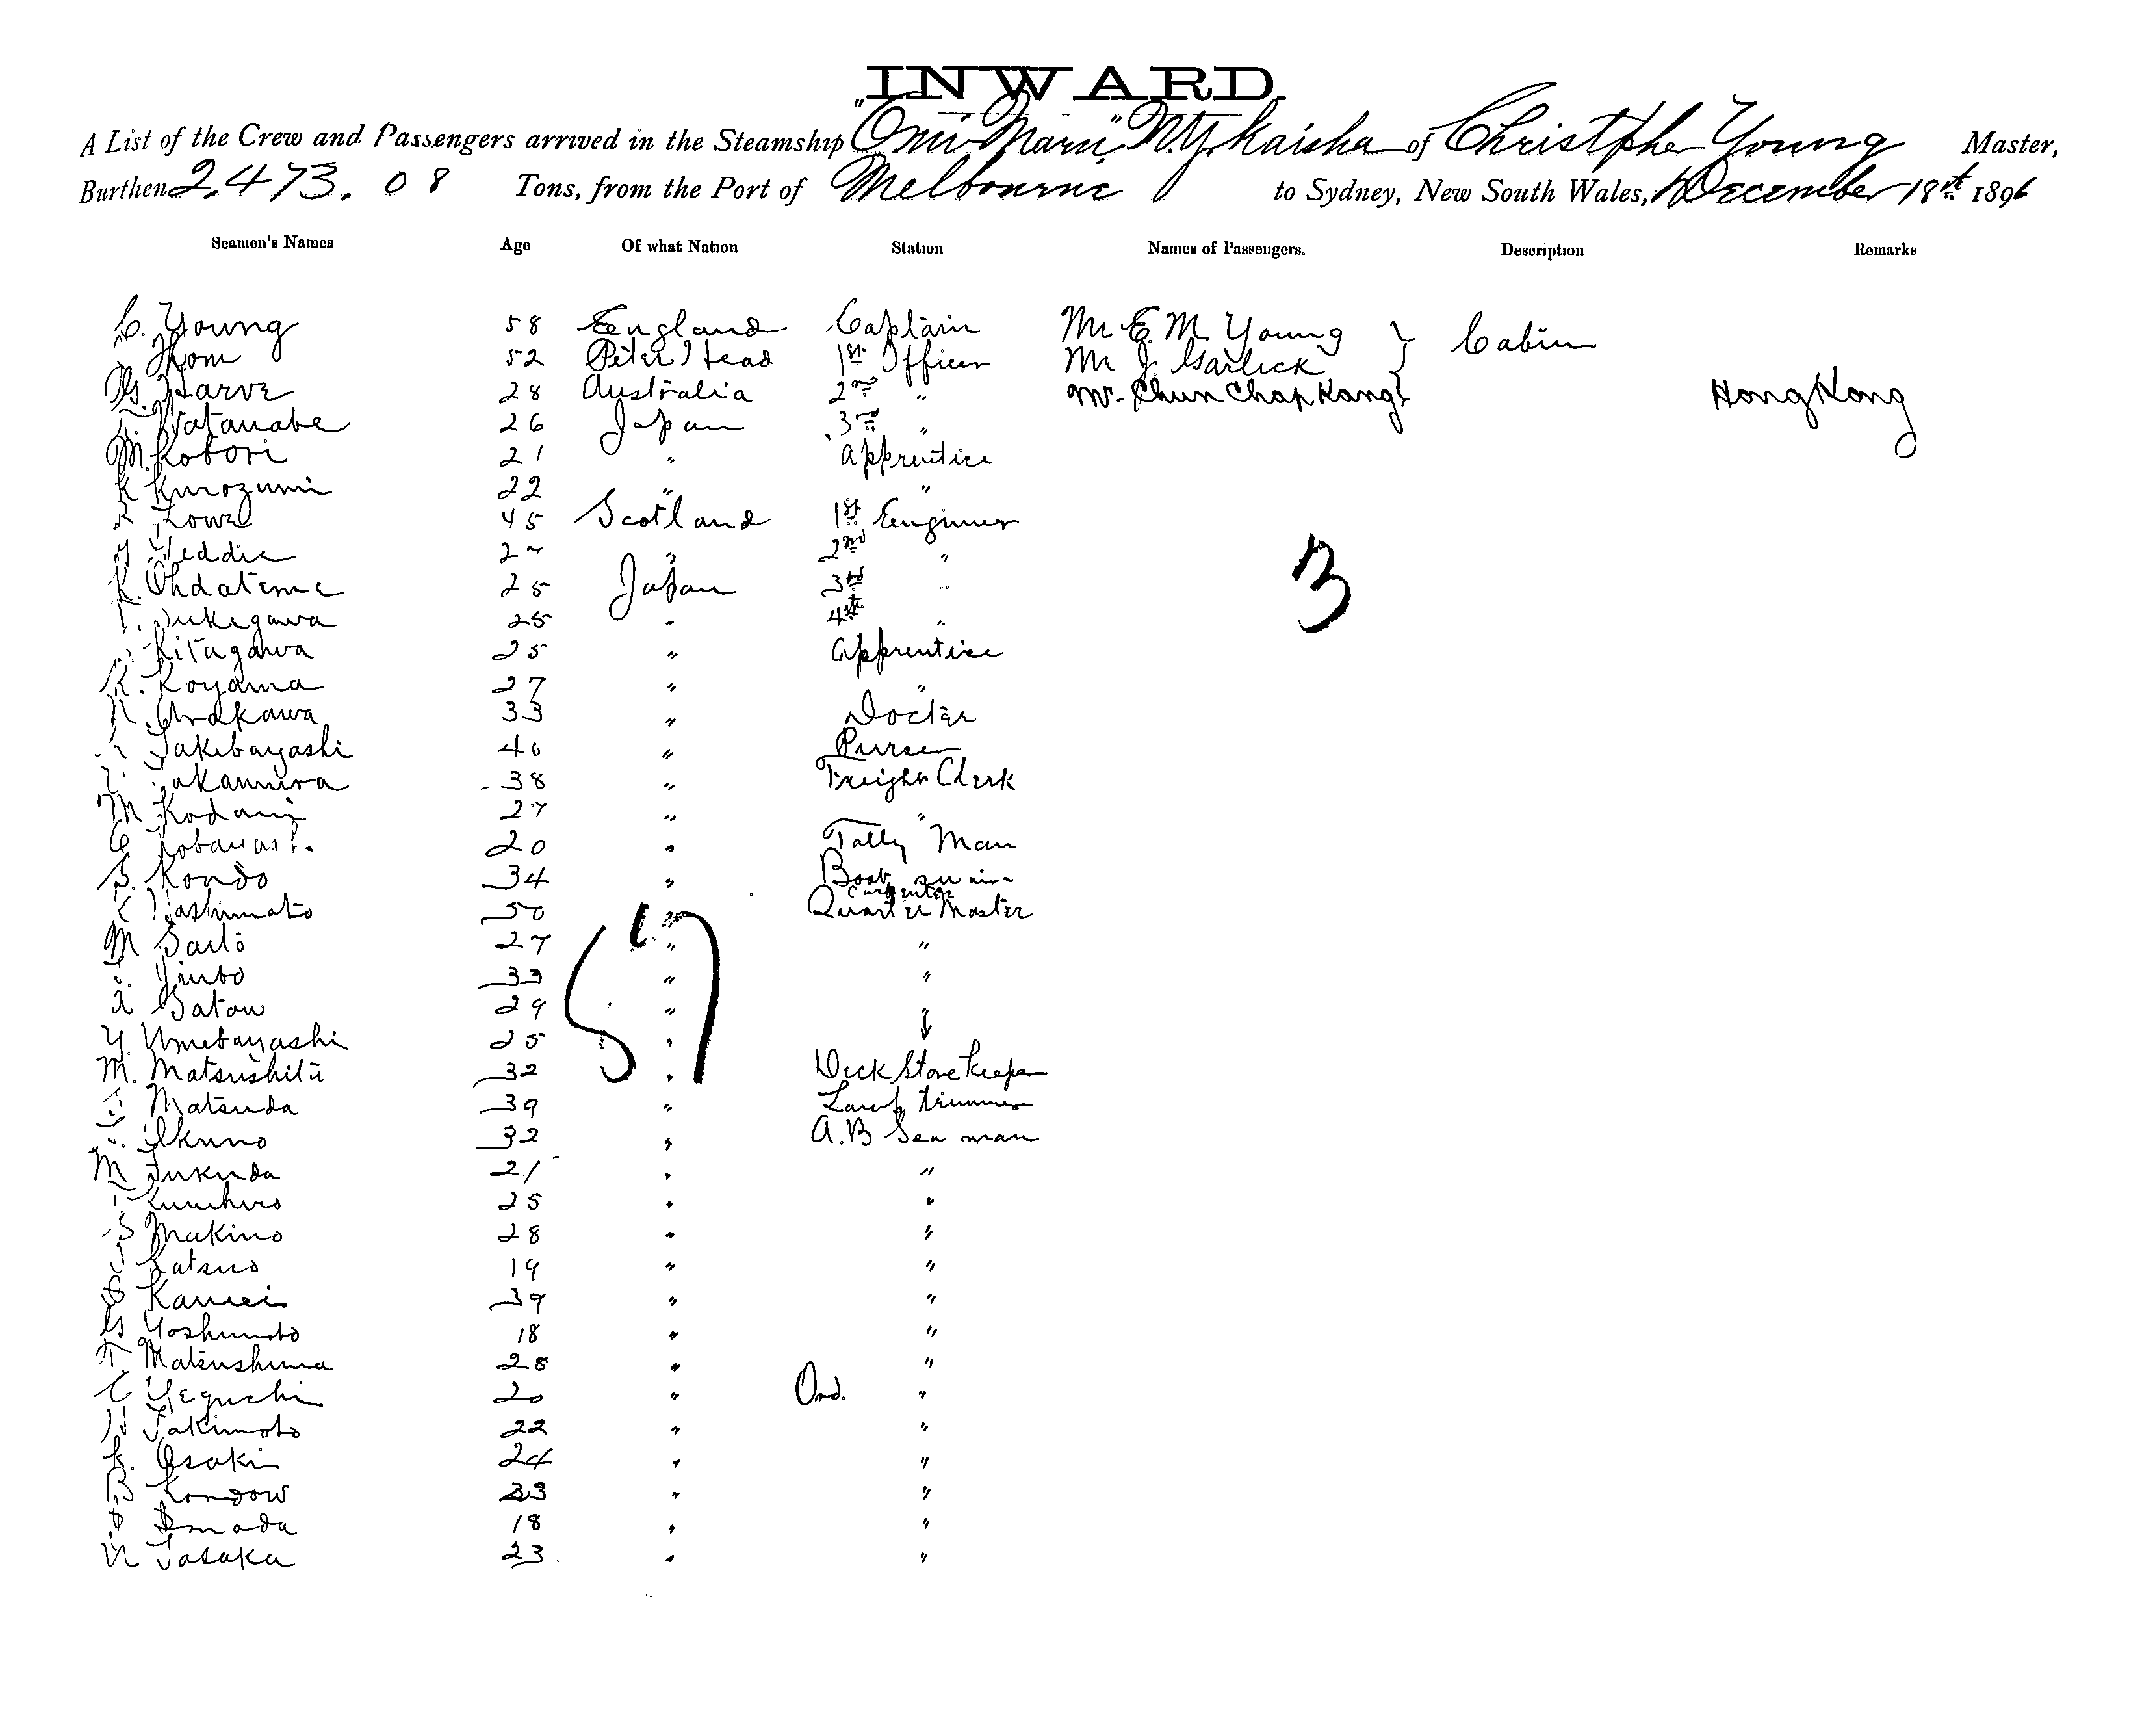 INWARD
A List of the Crew and Passengers arrived in the Steamship "Omi Maru" N.Y. Kaisha of Christpher Young Master,
Burthen 2,473.08 Tons, from the Port of Melbourne to Sydney, New South Wales, December 18th 1896
Seamen's Names Age Of what Nation Station Names of Passengers. Description Remarks
C. Young 58 England Captain Mr E. M. Young } Cabin
Thom 52 Peter Head 1st Officer Mr J. Garlick
28 Australia 2nd " Mr. Chun Chap Kang } Hong Kong
Watanabe 26 Japan 3rd "
M. Kobori 21 " Apprentice
K Kurozumi 22 " "
Lowe 45 Scotland 1st Engineer
Heddie 27 " 2nd "
K. Ohdateme 25 Japan 3rd "
T. Sukegawa 25 " 4th "
Kitagawa 25 " Apprentice
K. Koyama 27 " "
Arakawa 33 " Docter
Takebayashi 40 " Purser
38 " Freight Clerk
M Kodani 27 " "
C Kobayashi 20 " Tally Man
S. Kondo 34 " Boatswain
Carpenter
K Hashimoto 50 " Quarter Master
M Saito 27 " "
Jinbo 33 " "
Satow 29 " "
Y. Umebayashi 25 "
M. Matsushita 32 " Deck Store Keeper
Matsuda 39 " Lamp trimmer
Ikuno 32 " A.B Sea man
M Fukuda 21 " "
Kunihiro 25 " "
S Makino 28 " "
Katsuo 19 " "
Kamei 39 " "
Yoshimoto 18 " "
T Matsushima 28 " "
Yeguchi 20 " Ord. "
Takimoto 22 " "
K. Osaki 24 " "
B Kondow 23 " "
18 " "
N Tasaka 23 " "
57
3